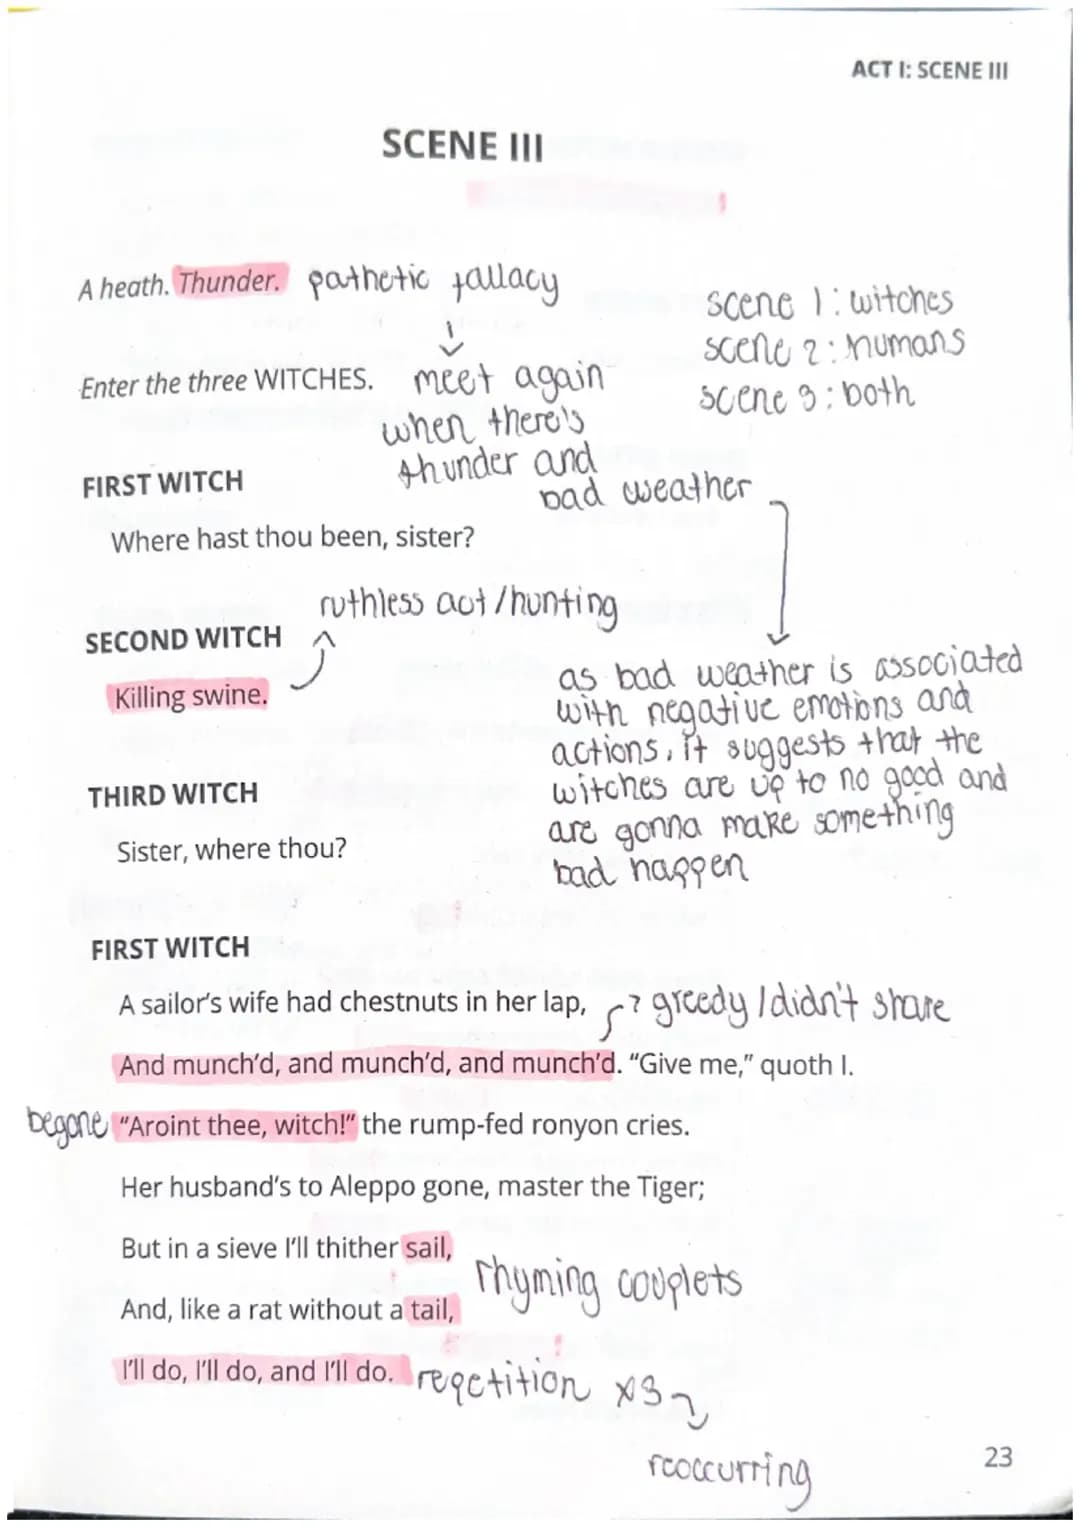 ACT I: SCENE III
SCENE III
A heath. Thunder. pathetic fallacy
scene 1: witches
scene 2: humans
scene 3: both
Enter the three WITCHES. meet again
when there's
thunder and
bad weather
FIRST WITCH
Where hast thou been, sister?
ruthless act/hunting
SECOND WITCH
Killing swine.
as bad weather is associated
with negative emotions and
actions, it suggests that the
witches are up to no good and
are gonna make something
bad happen
THIRD WITCH
Sister, where thou?
FIRST WITCH
A sailor's wife had chestnuts in her lap, greedy/didn't share
And munch'd, and munch'd, and munch'd. “Give me,” quoth I.
begone “Aroint thee, witch!” the rump-fed ronyon cries.
Her husband's to Aleppo gone, master the Tiger;
But in a sieve I'll thither sail,
rhyming couplets
And, like a rat without a tail,
I'll do, I'll do, and I'll do. repetition x3
reoccurring
23